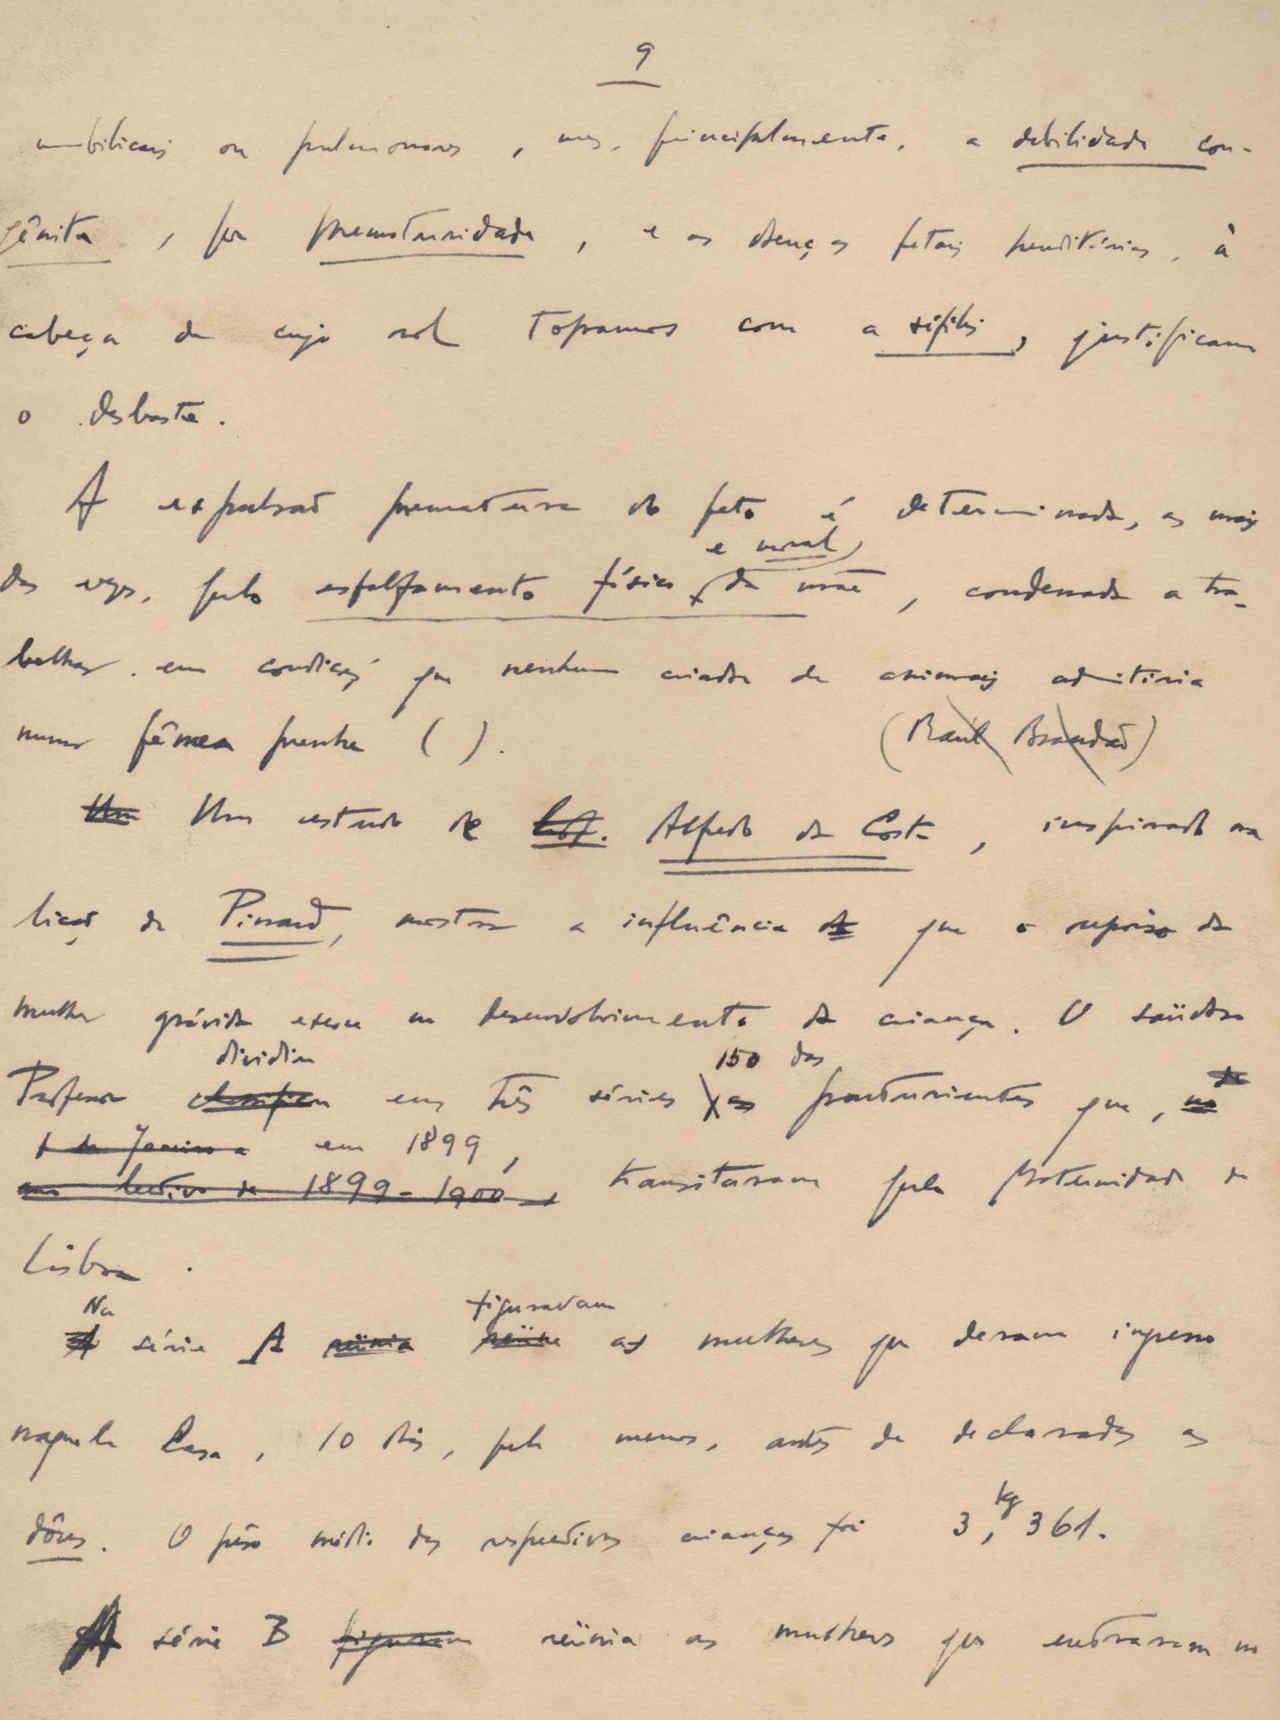 9
umbilicais ou pulmonares, mas, principalmente, a debilidade con-
gênita, por prematuridade, e as doenças fetais hereditárias, à
cabeça de cujo rol topamos com a sífilis, justificam
o desbaste.
A expulsão prematura do feto é determinada, as mais
e moral
das vezes, pelo esfalfamento físico da mãe, condenada a tra-
balhar em condições que nenhum criador de animais admitiria
numa fêmea prenhe ( ). (Raúl Brandão)
Um Um estudo de Prof. Alfredo da Costa, inspirado na
lição de Pinard, mostra a influência que o repouso da
mulher grávida exerce no desenvolvimento da criança. O saüdoso
dividiu 150 das
Professor classificou em três séries as parturientes que, no
de Janeiro a em 1899,
ano lectivo de 1899-1900, transitaram pela Maternidade de
Lisboa.
Na figuravam
A série A reünia reüne as mulheres que deram ingresso
naquela Casa, 10 dias, pelo menos, antes de declaradas as
dôres. O pêso médio das respectivas crianças foi 3,kg 361.
A série B figuram reünia as mulheres que entraram na